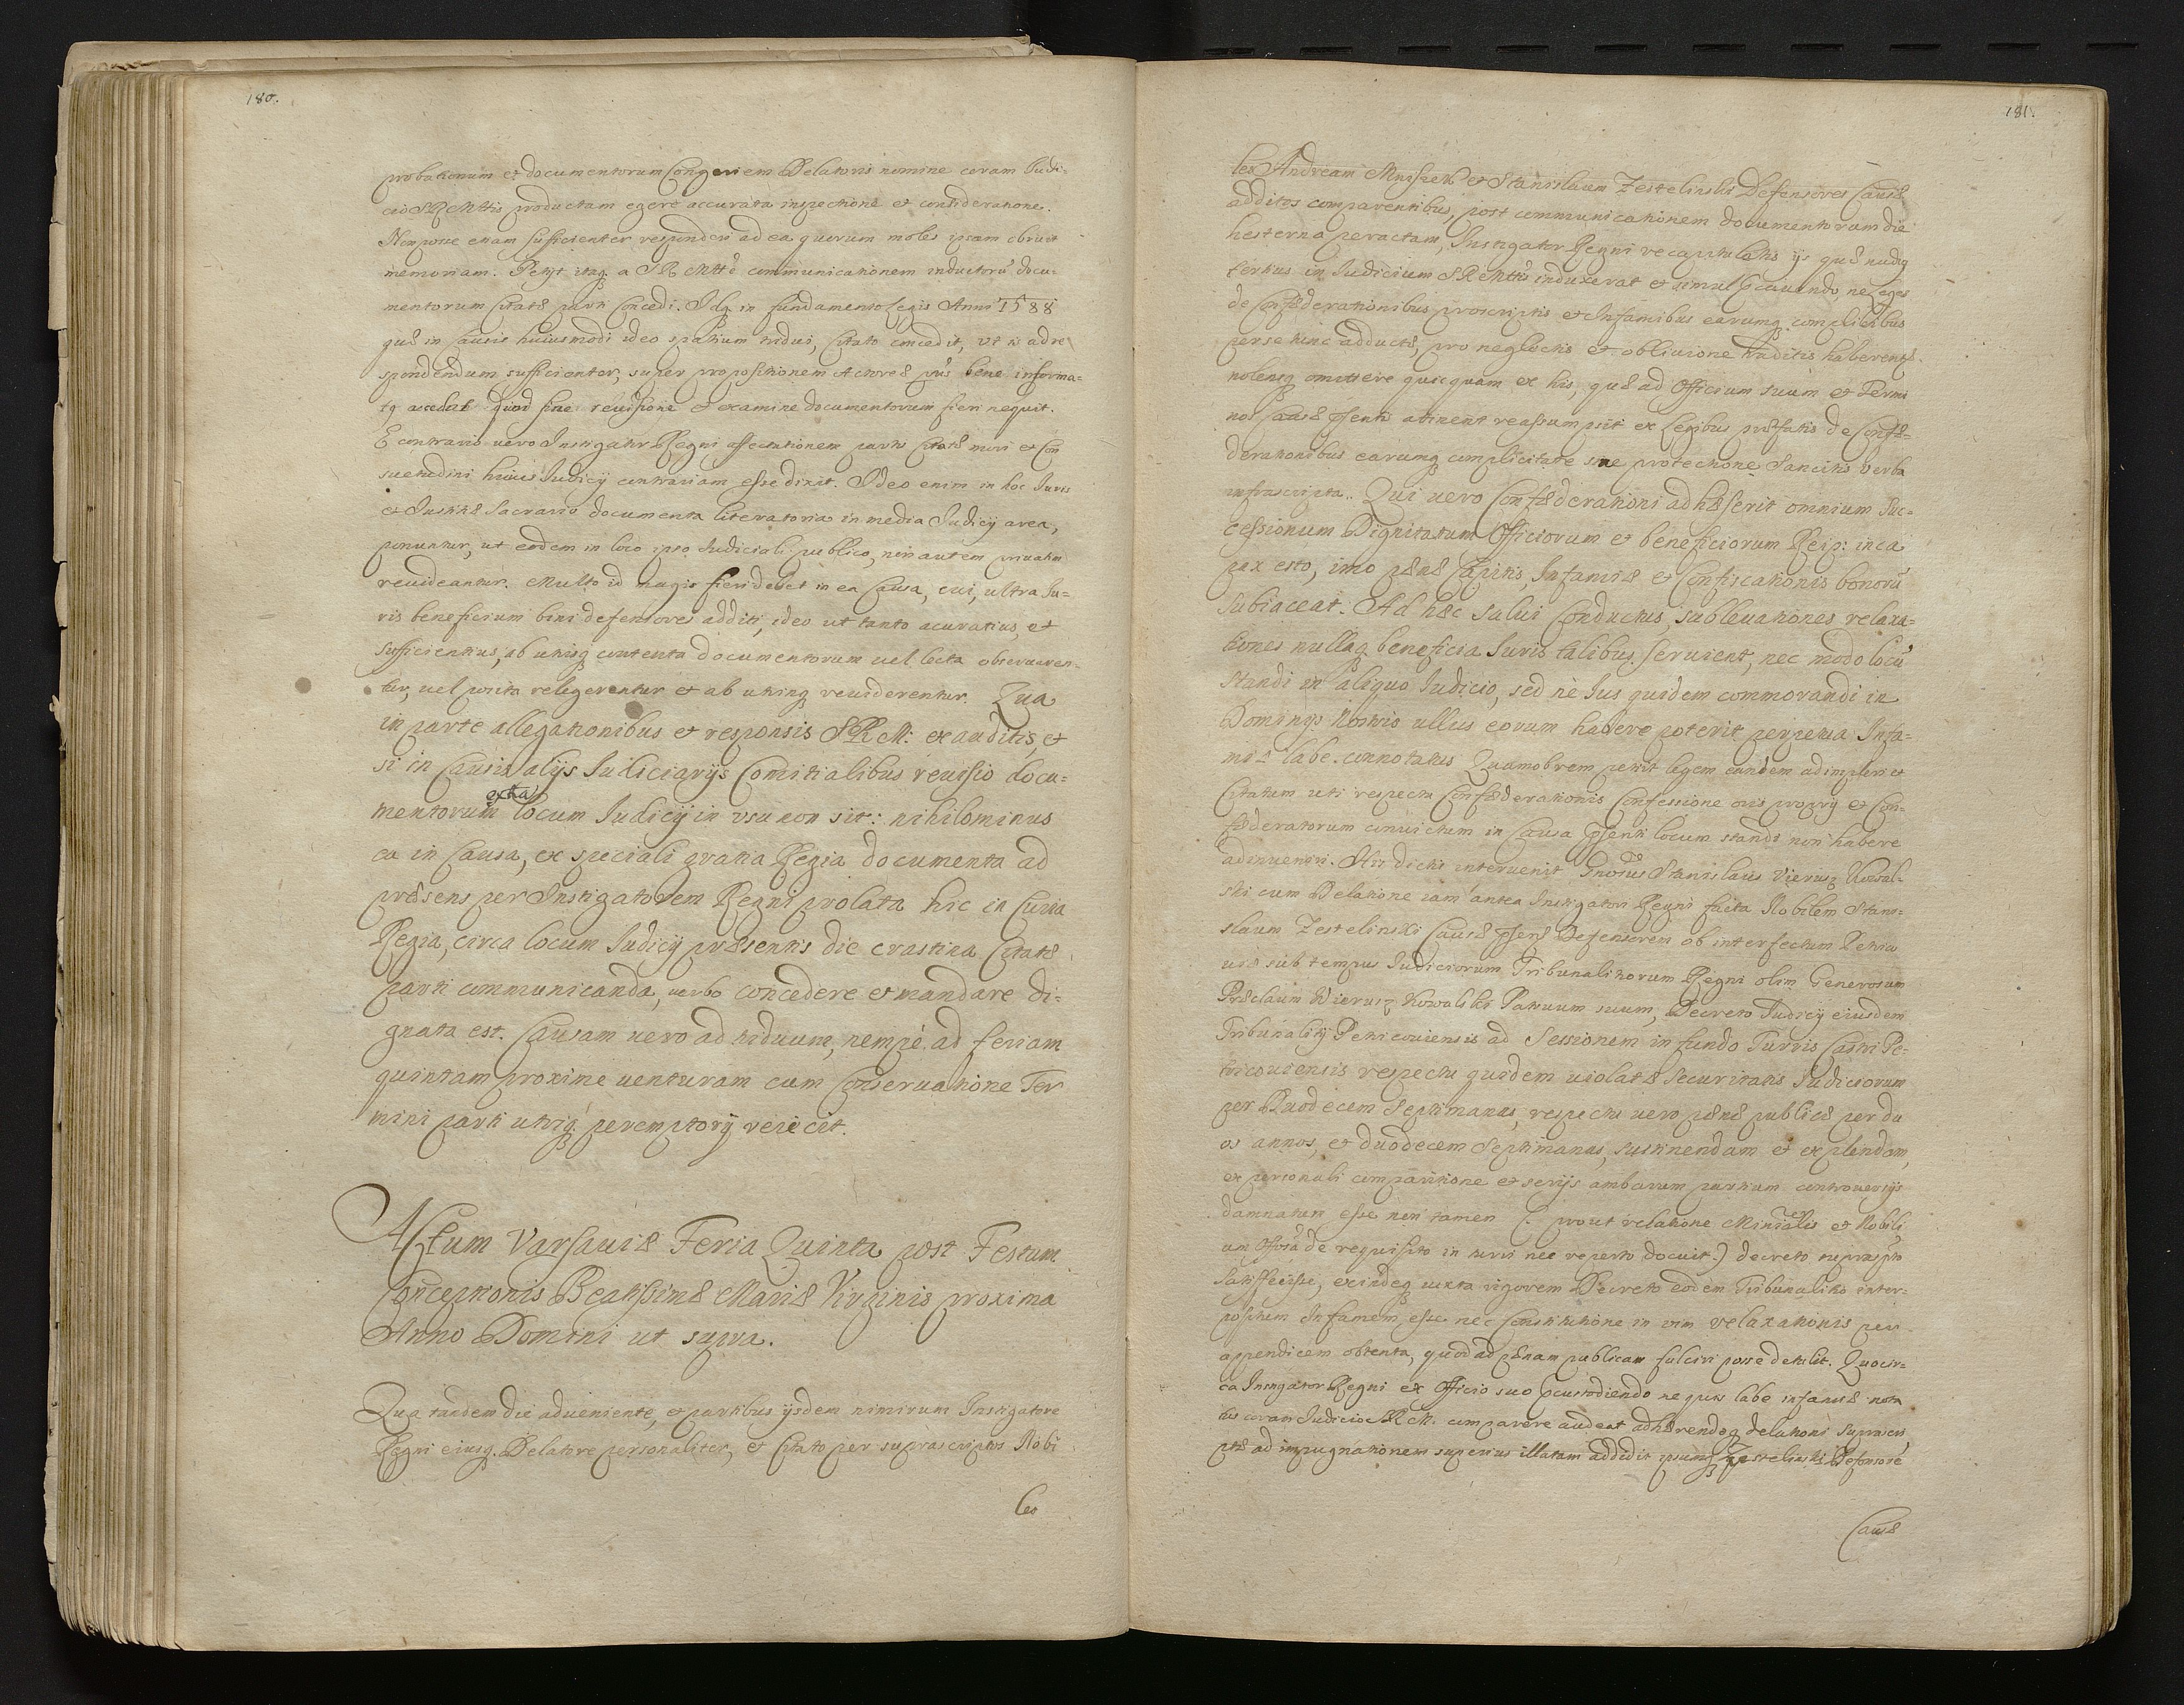 180.
probationum et documentorum Congeriem Delatoris nomine coram Judi-
cio SRMttis productam egere accurata inspectione et consideratione.
Non posse etiam sufficienter respondere ad ea quorum moles ipsam obruit
memoriam. Petyt itaq a SRMtte communicationem inductorũ docu-
mentorum Citatæ parti Concedi. Idq in fundamento Legis Anni 1588
quæ in Causis huiusmodi ideo spatium tridui, Citato concedit, ut is ad re
spondendum sufficienter, super propositionem Actoreæ ptis bene informa-
tq accedat quod sine reuisione et examine documentorum fieri nequit.
E contrario uero Instigator Regni affectationem partis Citatæ mori et Con
suetudini huius Judicij contrariam esse dixit. Ideo enim in hoc Juris
et Justitiæ Sacrario documenta literatoria in media Judicij area,
ponuntur, ut eodem in loco ipso Judiciali publico, non autem priuatim
reuideantur. Multo id magis fieri debet in ea Causa, cui, ultra Ju-
ris beneficium bini defensores additi, ideo ut tanto acuratius, et
Sufficientius, ab utrisq contenta documentorum uel lecta obseruaren-
tur, uel posita relegerentur et ab utrinq reuiderentur. Qua
in parte allegationibus et responsis SRM: exauditis, et
si in Causis alijs Judiciarijs Comitialibus reuisio docu-
mentorum extra locum Judicij in vsu non sit: nihilominus
ea in Causa, ex speciali gratia Regia documenta ad
præsens per Instigatorem Regni prolata hic in Curia
Regia, circa locum Judicij præsentis die crastina Citatæ
parti communicanda, uerbo concedere et mandare di-
gnata est. Causam uero ad triduum, nempe ad feriam
quintam proxime uenturam cum Conseruatione Ter
mini parti utriq peremptorij reiecit.
Actum Varsauiæ Feria Quinta post Festum
Conceptionis Beatissimæ Mariæ Virginis proxima
Anno Domini ut supra.
Qua tandem die adueniente, et partibus ijsdem nimirum Instigatore
Regni eiusq. Delatore personaliter, et Citato per suprascriptos Nobi
les
181.
les Andream et Stanislaum Zestelinski Defensores Causæ
additos comparentibus, post communicationem documentorum die
hesterna peractam, Instigator Regni recapitulatis ijs quæ nudiq
tertius in Judicium SRMttis induxerat et simul pcauendo, ne Leges
de Confæderationibus proscriptis et Infamibus earumq complicibus
per se hinc adductæ, pro neglectis et obliuione traditis haberentur
nolensq omittere quicquam ex his, quæ ad Officium suum et Termi
nos Causæ psentis atinent reassumpsit ex Legibus præfatis de Confæ-
derationibus earumq complicitate siue protectione Sancitis verba
infrascripta. Qui uero Confæderationi adhæserit omnium Suc-
cessionum Dignitatum Officiorum et beneficiorum Reip: inca
pax esto, imo pænæ Capitis, Infamiæ et Confiscationis bonorũ
Subiaceat. Ad hæc salui Conductus, subleuationes relaxa-
tiones nullaq beneficia Juris talibus seruient, nec modo locũ
standi in aliquo Judicio, sed nè Jus quidem commorandi in
Dominijs Nostris ullus eorum habere poterit perpetua Infa-
miæ labe connotatus Quamobrem petit legem eandem adimpleri et
Citatum uti respectu Confæderationis Confessione oris proprij et Con-
fæderatorum conuictum in Causa psenti locum standi non habere
adinueniri. His dictis interuenit Gnosus Stanislaus Vierusz Kowal-
ski cum Delatione iam antea Instigatori Regni facta Nobilem Stani-
slaum Zestelinski Causæ psentis Defensorem ob interfectum Petrico
uiæ sub tempus Judiciorum Tribunalitiorum Regni olim Generosum
Wierusz Kowalski Patruum suum, Decreto Judicij eiusdem
Tribunalitij Petricouiensis ad Sessionem in fundo Turris Castri Pe-
tricouiensis respectu quidem uiolatæ Securitatis Judiciorum
per Duodecem Septimanas, respectu uero pænæ publicæ per du
os annos, et duodecem Septimanas, sustinendam et explendam,
ex personali comparitione et serijs ambarum partium controuersijs
damnatum esse non tamen (: prout relatione Minialis et Nobili
um de requisito in turri nec reperto docuit:) decreto supraspto
satisfecisse, exindeq iuxta rigorem Decreto eodem Tribunalitio inter-
positum Infamem esse nec Constitutione in vim relaxationis per
appendicem obtenta, quod ad pænam publicam fulciri posse detulit. Quocir-
ca Instigator Regni ex Officio suo pcustodiendo ne quis labe infamiæ nota
tus coram Judicio SRM. comparere audeat adhærendoq delationi suprascri
ptæ ad impugnationem superius illatam addidit ipsumq Zestelinski Defensorẽ
Causæ